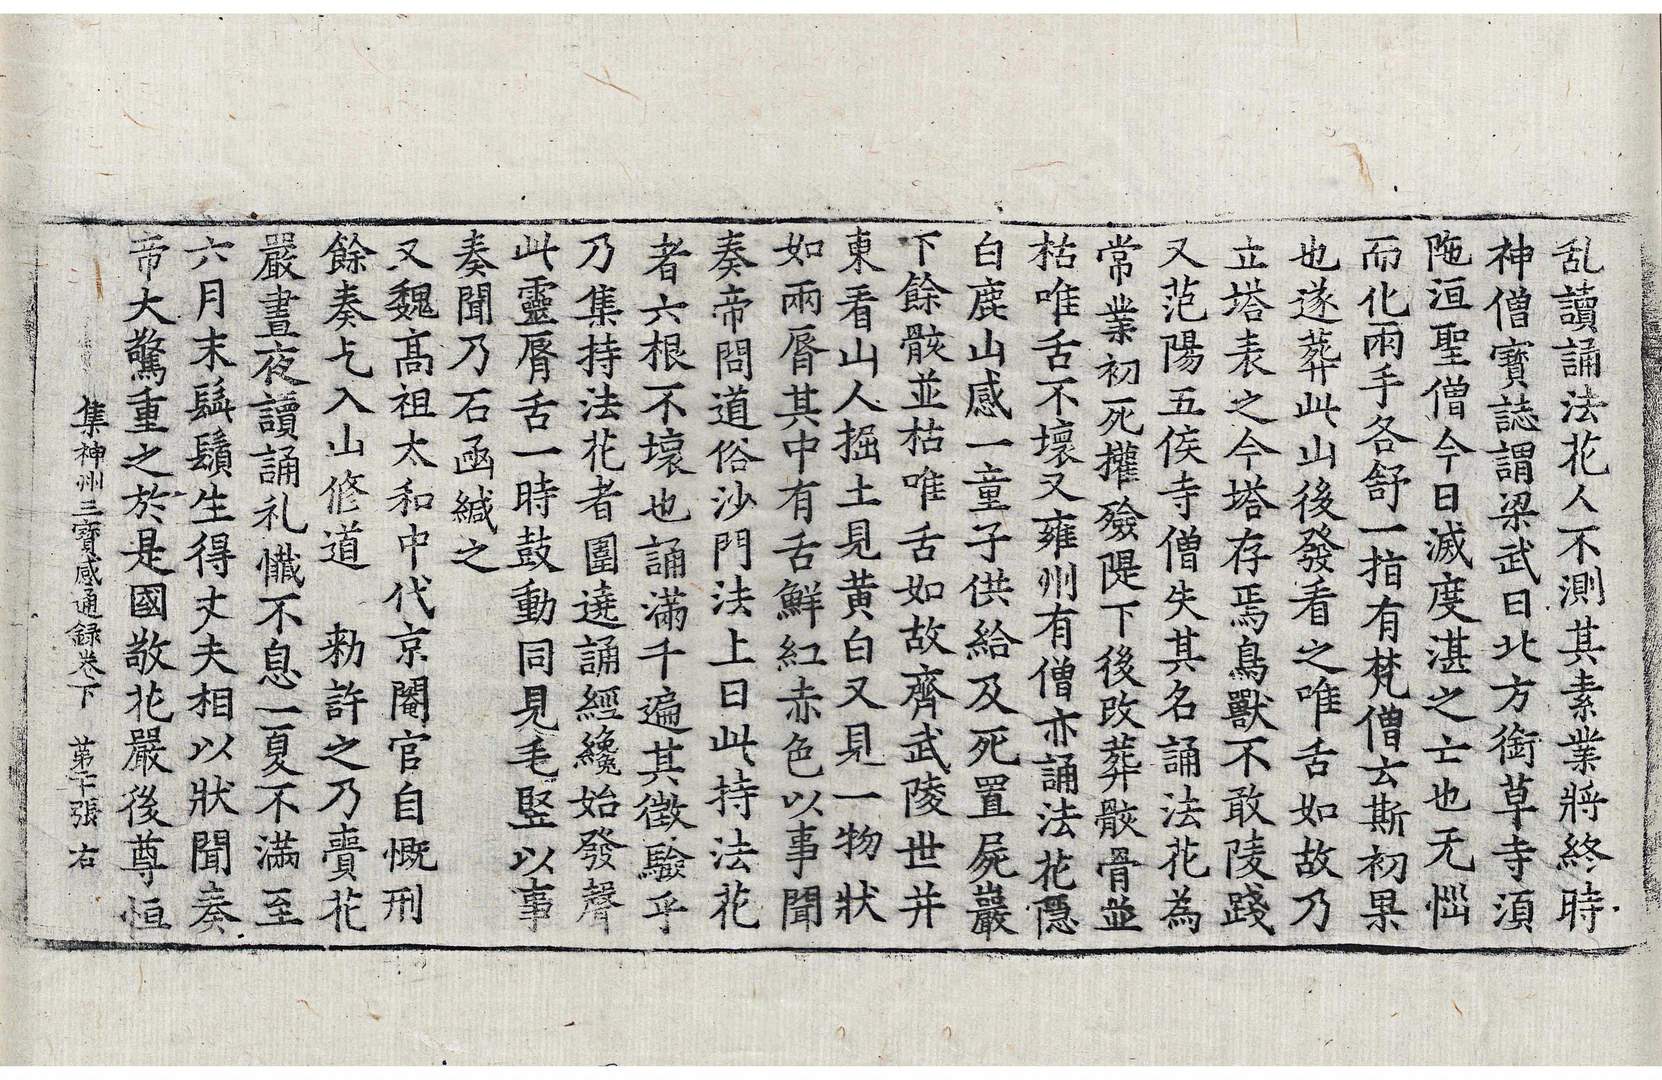 乱讀誦法花人不測其素業將終時
神僧寶誌謂梁武曰北方銜草寺湏
陁洹聖僧今日滅度湛之亡也无惱
而化兩手各舒一指有梵僧云斯初果
也遂葬此山後發看之唯舌如故乃
立塔表之今塔存焉鳥獸不敢陵踐
又范陽五侯寺僧失其名誦法花為
常業初死權殮隄下後改葬骸骨並
枯唯舌不壞又雍州有僧亦誦法花隱
白鹿山感一童子供給及死置屍巖
下餘骸並枯唯舌如故齊武陵世并
東看山人掘土見黃白又見一物狀
如兩脣其中有舌鮮紅赤色以事聞
奏帝問道俗沙門法上曰此持法花
者六根不壞也誦滿千遍其徵驗乎
乃集持法花者圍遶誦經纔始發聲
此靈脣舌一時鼓動同見毛竪以事
奏聞乃石函緘之
又魏髙祖太和中代京閹官自慨刑
餘奏乞入山修道　勑許之乃賷花
嚴晝夜讀誦礼懺不息一夏不滿至
六月末髭鬚生得丈夫相以狀聞奏
帝大驚重之於是國敬花嚴後尊恒
集神州三寶感通録卷下　第十張　右